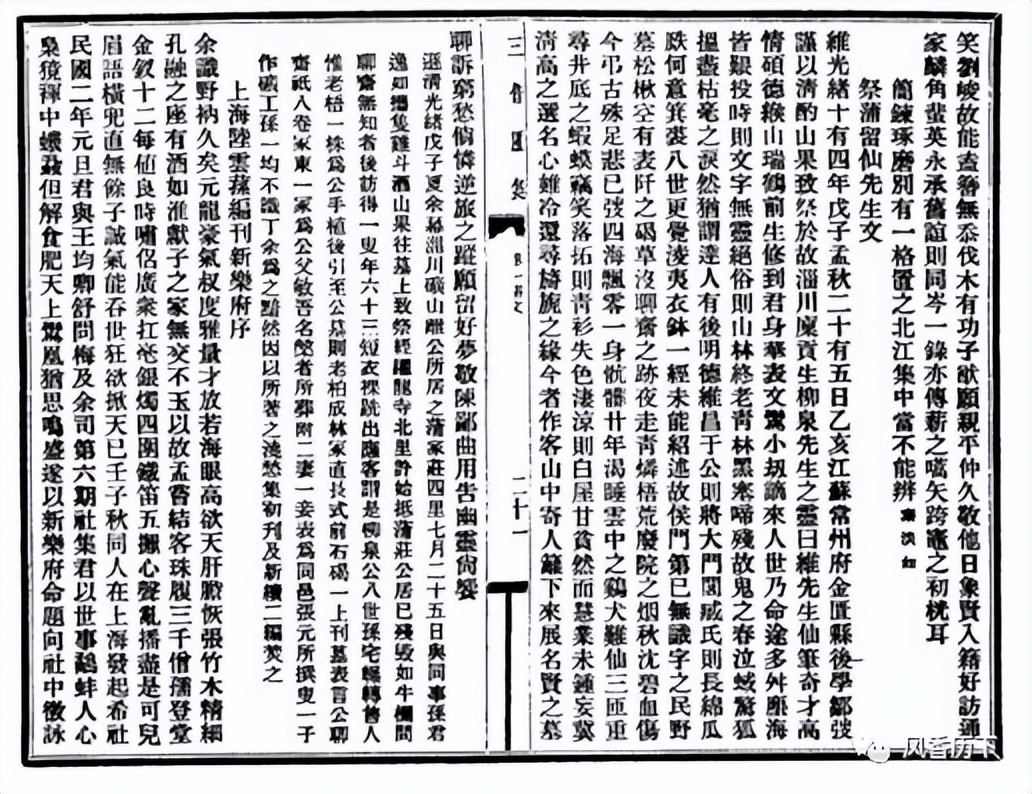 笑劉峻故能盍簪無忝伐木有功子猷願親平仲久敬他日象賢入籍好訪通
家麟角蜚英永承舊誼則同岑一錄亦傅薪之嚆矢跨竈之初桄耳
簡鍊琢磨別有一格置之北江集中當不能辨
祭蒲留仙先生文
維光緒十有四年戊子孟秋二十有五日乙亥江蘇常州府金匱縣後學鄒弢
謹以清酌山果致祭於故淄川廩貢生柳泉先生之靈曰維先生仙筆奇才高
情碩德緱山瑞鶴前生修到君身華表文鸞小劫謫來人世乃命途多舛塵海
皆艱投時則文字無靈絕俗則山林終老青林黑塞啼殘故鬼之春泣蜮驚狐
搵盡枯毫之淚然猶謂達人有後明德維昌于公則將大門閭臧氏則長綿瓜
瓞何意箕裘八世更覺淩夷衣鉢一經未能紹述故侯門第已無識字之民野
墓松楸空有表阡之碣草沒聊齋之跡夜走青燐梧荒廢院之烟秋沈碧血傷
今弔古殊足悲已弢四海飄零一身骯髒廿年渴睡雲中之鷄犬難仙三匝重
尋井底之蝦蟆竊笑落拓則青衫失色淒涼則白屋甘貧然而慧業未鍾妄冀
清高之選名心雖冷還尋旖旎之緣今者作客山中寄人籬下來展名賢之墓
三借廬集
二十一
聊訴窮愁倘憐逆旅之蹤願留好夢敬陳鄙曲用告幽靈尚饗
遜清光緒戊子夏余幕淄川礦山離公所居之蒲家莊四里七月二十五日與同事孫君
逸如攜隻雞斗酒山果往墓上致祭經躍龍寺北里許始抵蒲莊公居已殘毀如牛欄問
聊齋無知者後訪得一叟年六十三短衣裸跣出應客謂是柳泉公八世孫宅輾轉售人
惟老梧一株爲公手植後引至公墓則老柏成林冢直長式前石碣一上刊墓表言公聊
齋祇八卷冢東一冢爲公父敏吾名槃者所葬附二妻一妾表爲同邑張元所撰叟一子
作礦工孫一均不識丁余爲之黯然因以所著之澆愁集初刊及新續二編焚之
上海陸雲蓀編刊新樂府序
余識野衲久矣元龍豪氣叔度雅量才放若海眼高欲天肝膽恢張竹木精細
孔融之座有酒如淮獻子之家無交不玉以故孟嘗結客珠履三千僧孺登堂
金釵十二每値良時嘯侶廣衆扛毫銀燭四圍鐵笛五撇心聲亂播盡是可兒
眉語橫兜直無餘子誠氣能吞世狂欲掀天已壬子秋同人在上海發起希社
民國二年元旦君與王均卿舒問梅及余司第六期社集君以世事鷸蚌人心
梟獍禈中蟻蝨但解食肥天上鸞凰猶思鳴盛遂以新樂府命題向社中徵詠
风香历下